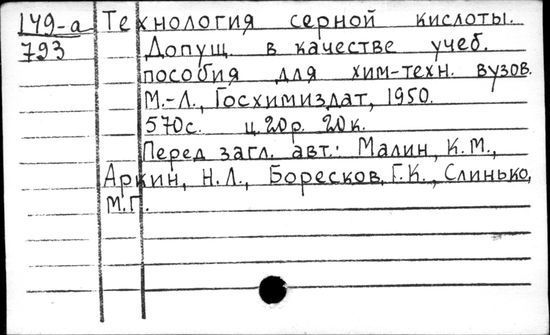 149-а Технология серной кислоты.
793 Допущ. в качестве учеб.
пособия для хим-техн. вузов.
М.-Л., Госхимиздат, 1950.
570с. ц.20р. 20к.
Перед загл. авт.: Малин, К.М.,
Аркин, Н.Л., Боресков, Г.К., Слинько,
М.Г.